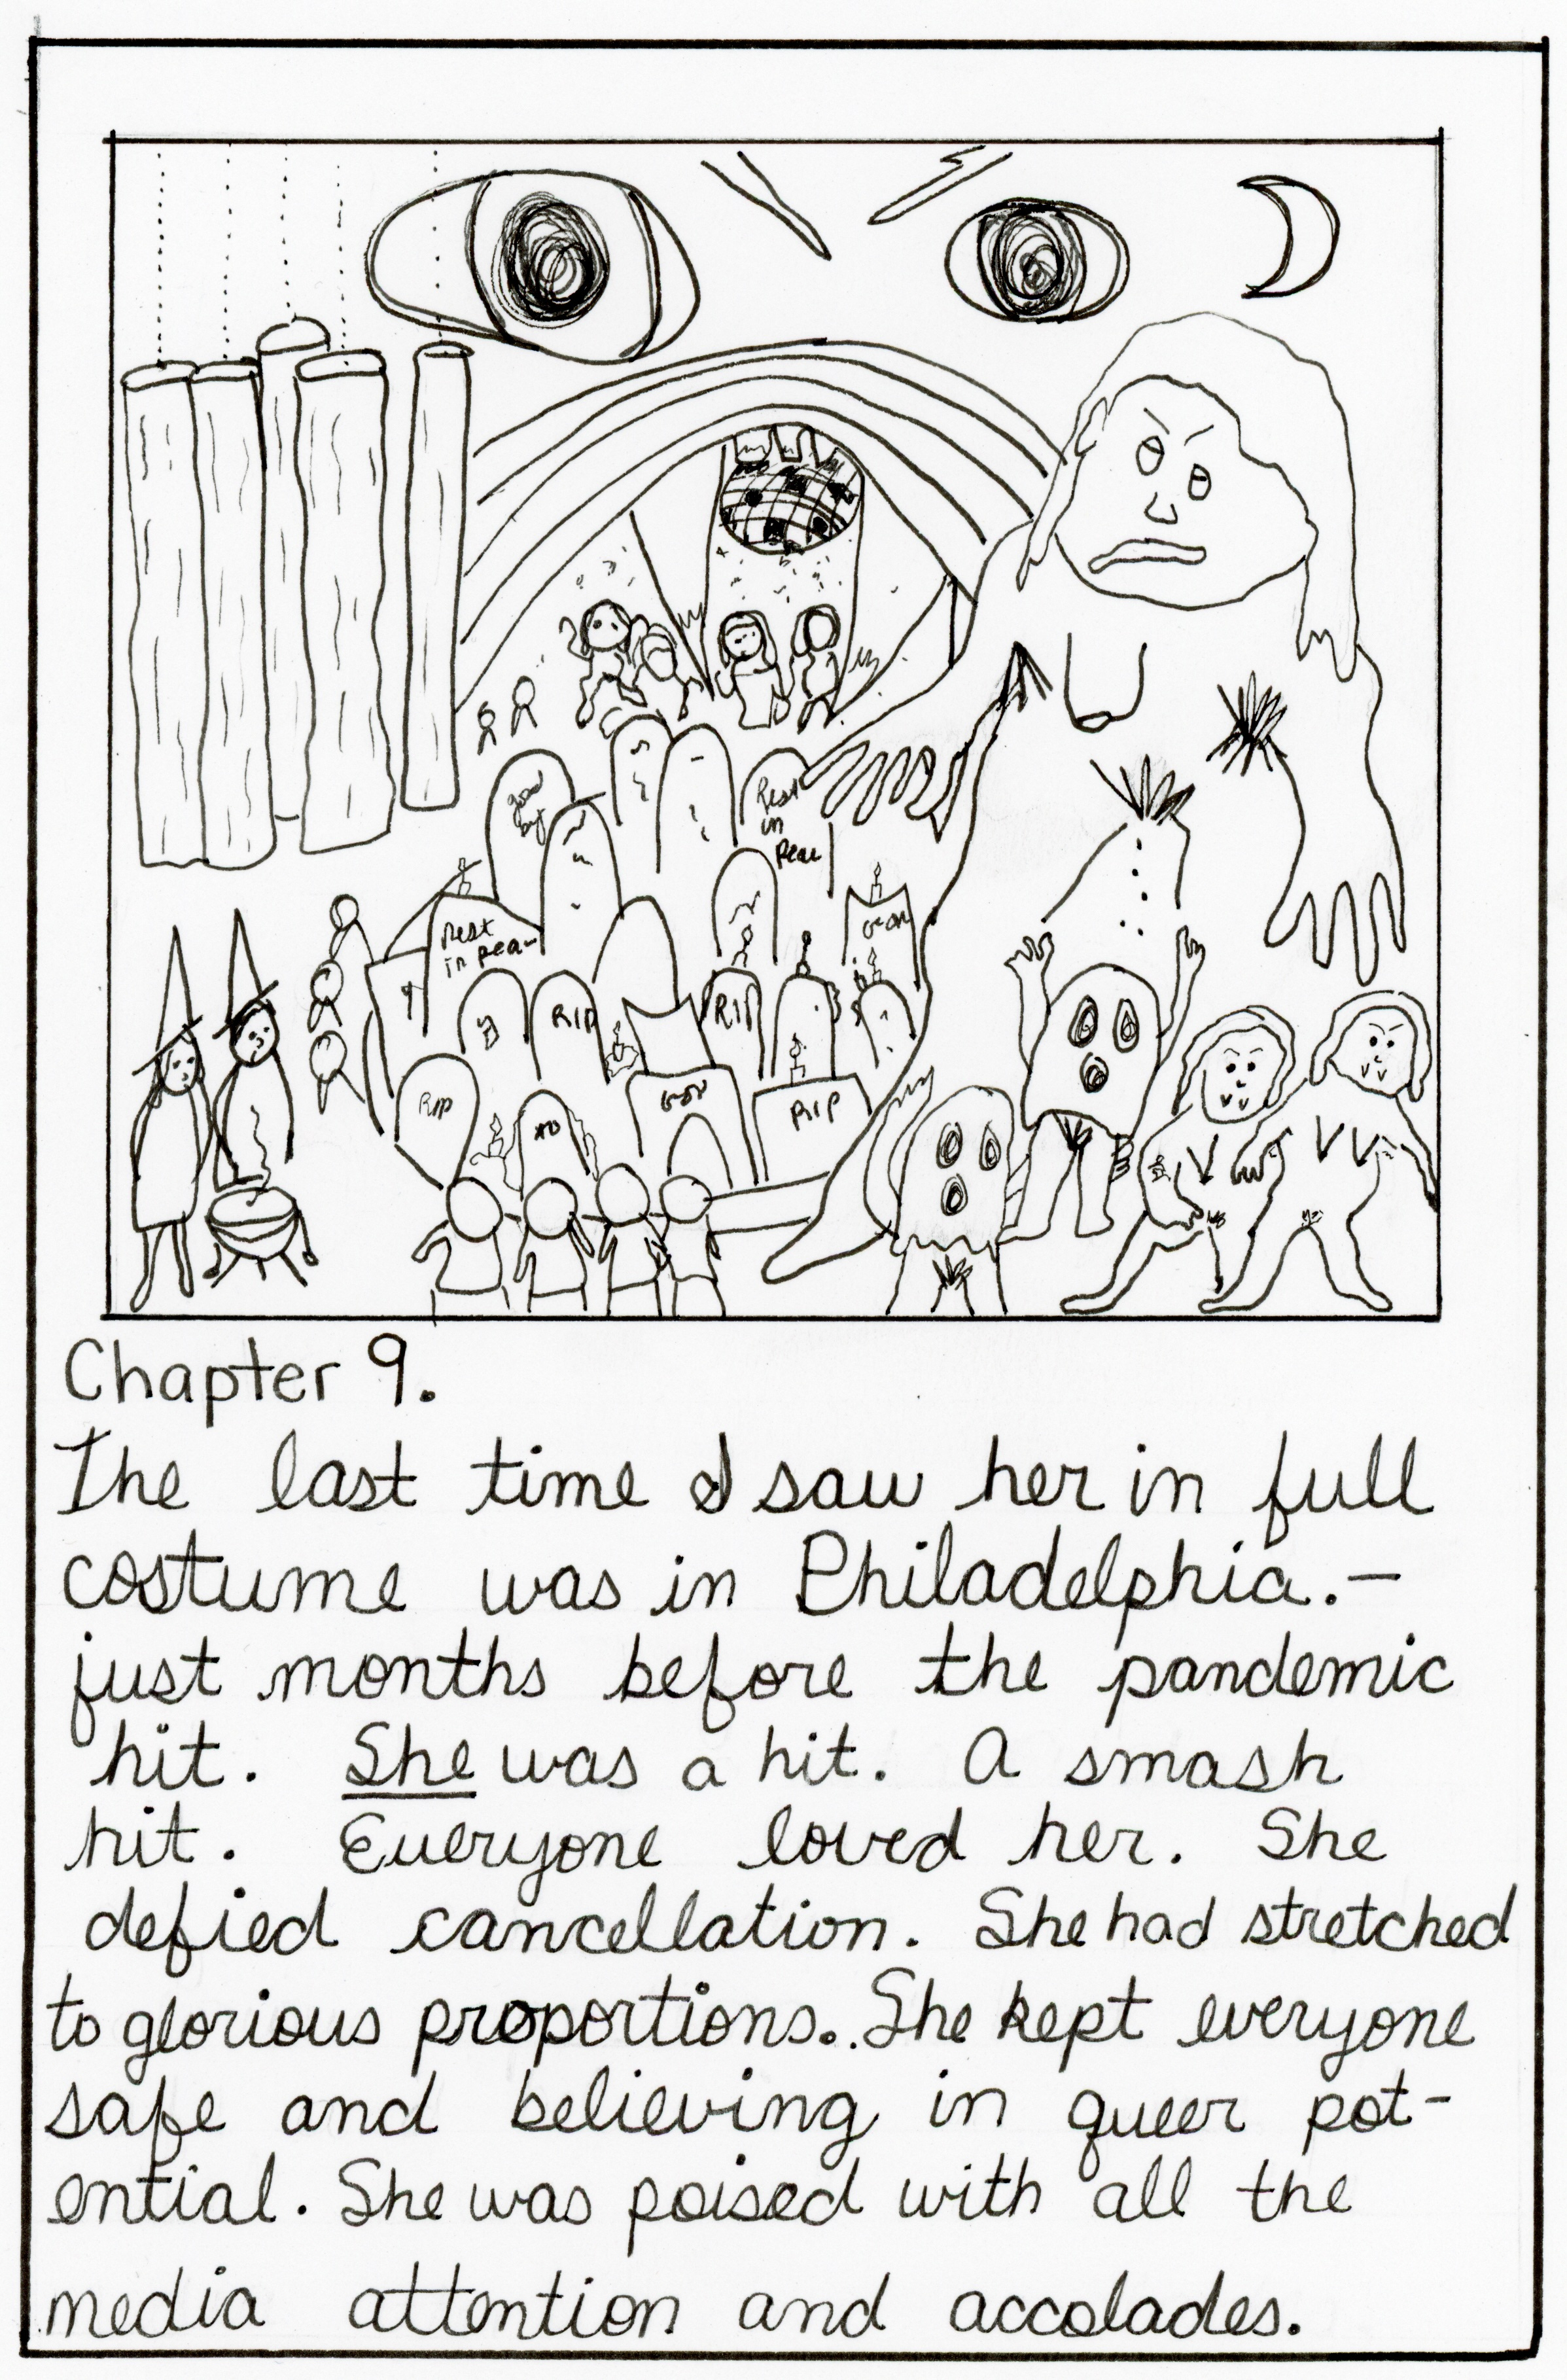 Rest
in
Peac
Rest
in Pea
RIP
RIP
RIP
RIP
Chapter 9.
The last time I saw her in full
costume was in Philadelphia.—
just months before the pandemic
hit. She was a hit. A smash
hit. Everyone loved her. She
defied cancellation. She had stretched
to glorious proportions. She kept everyone
safe and believing in queer pot-
ential. She was poised with all the
media attention and accolades.